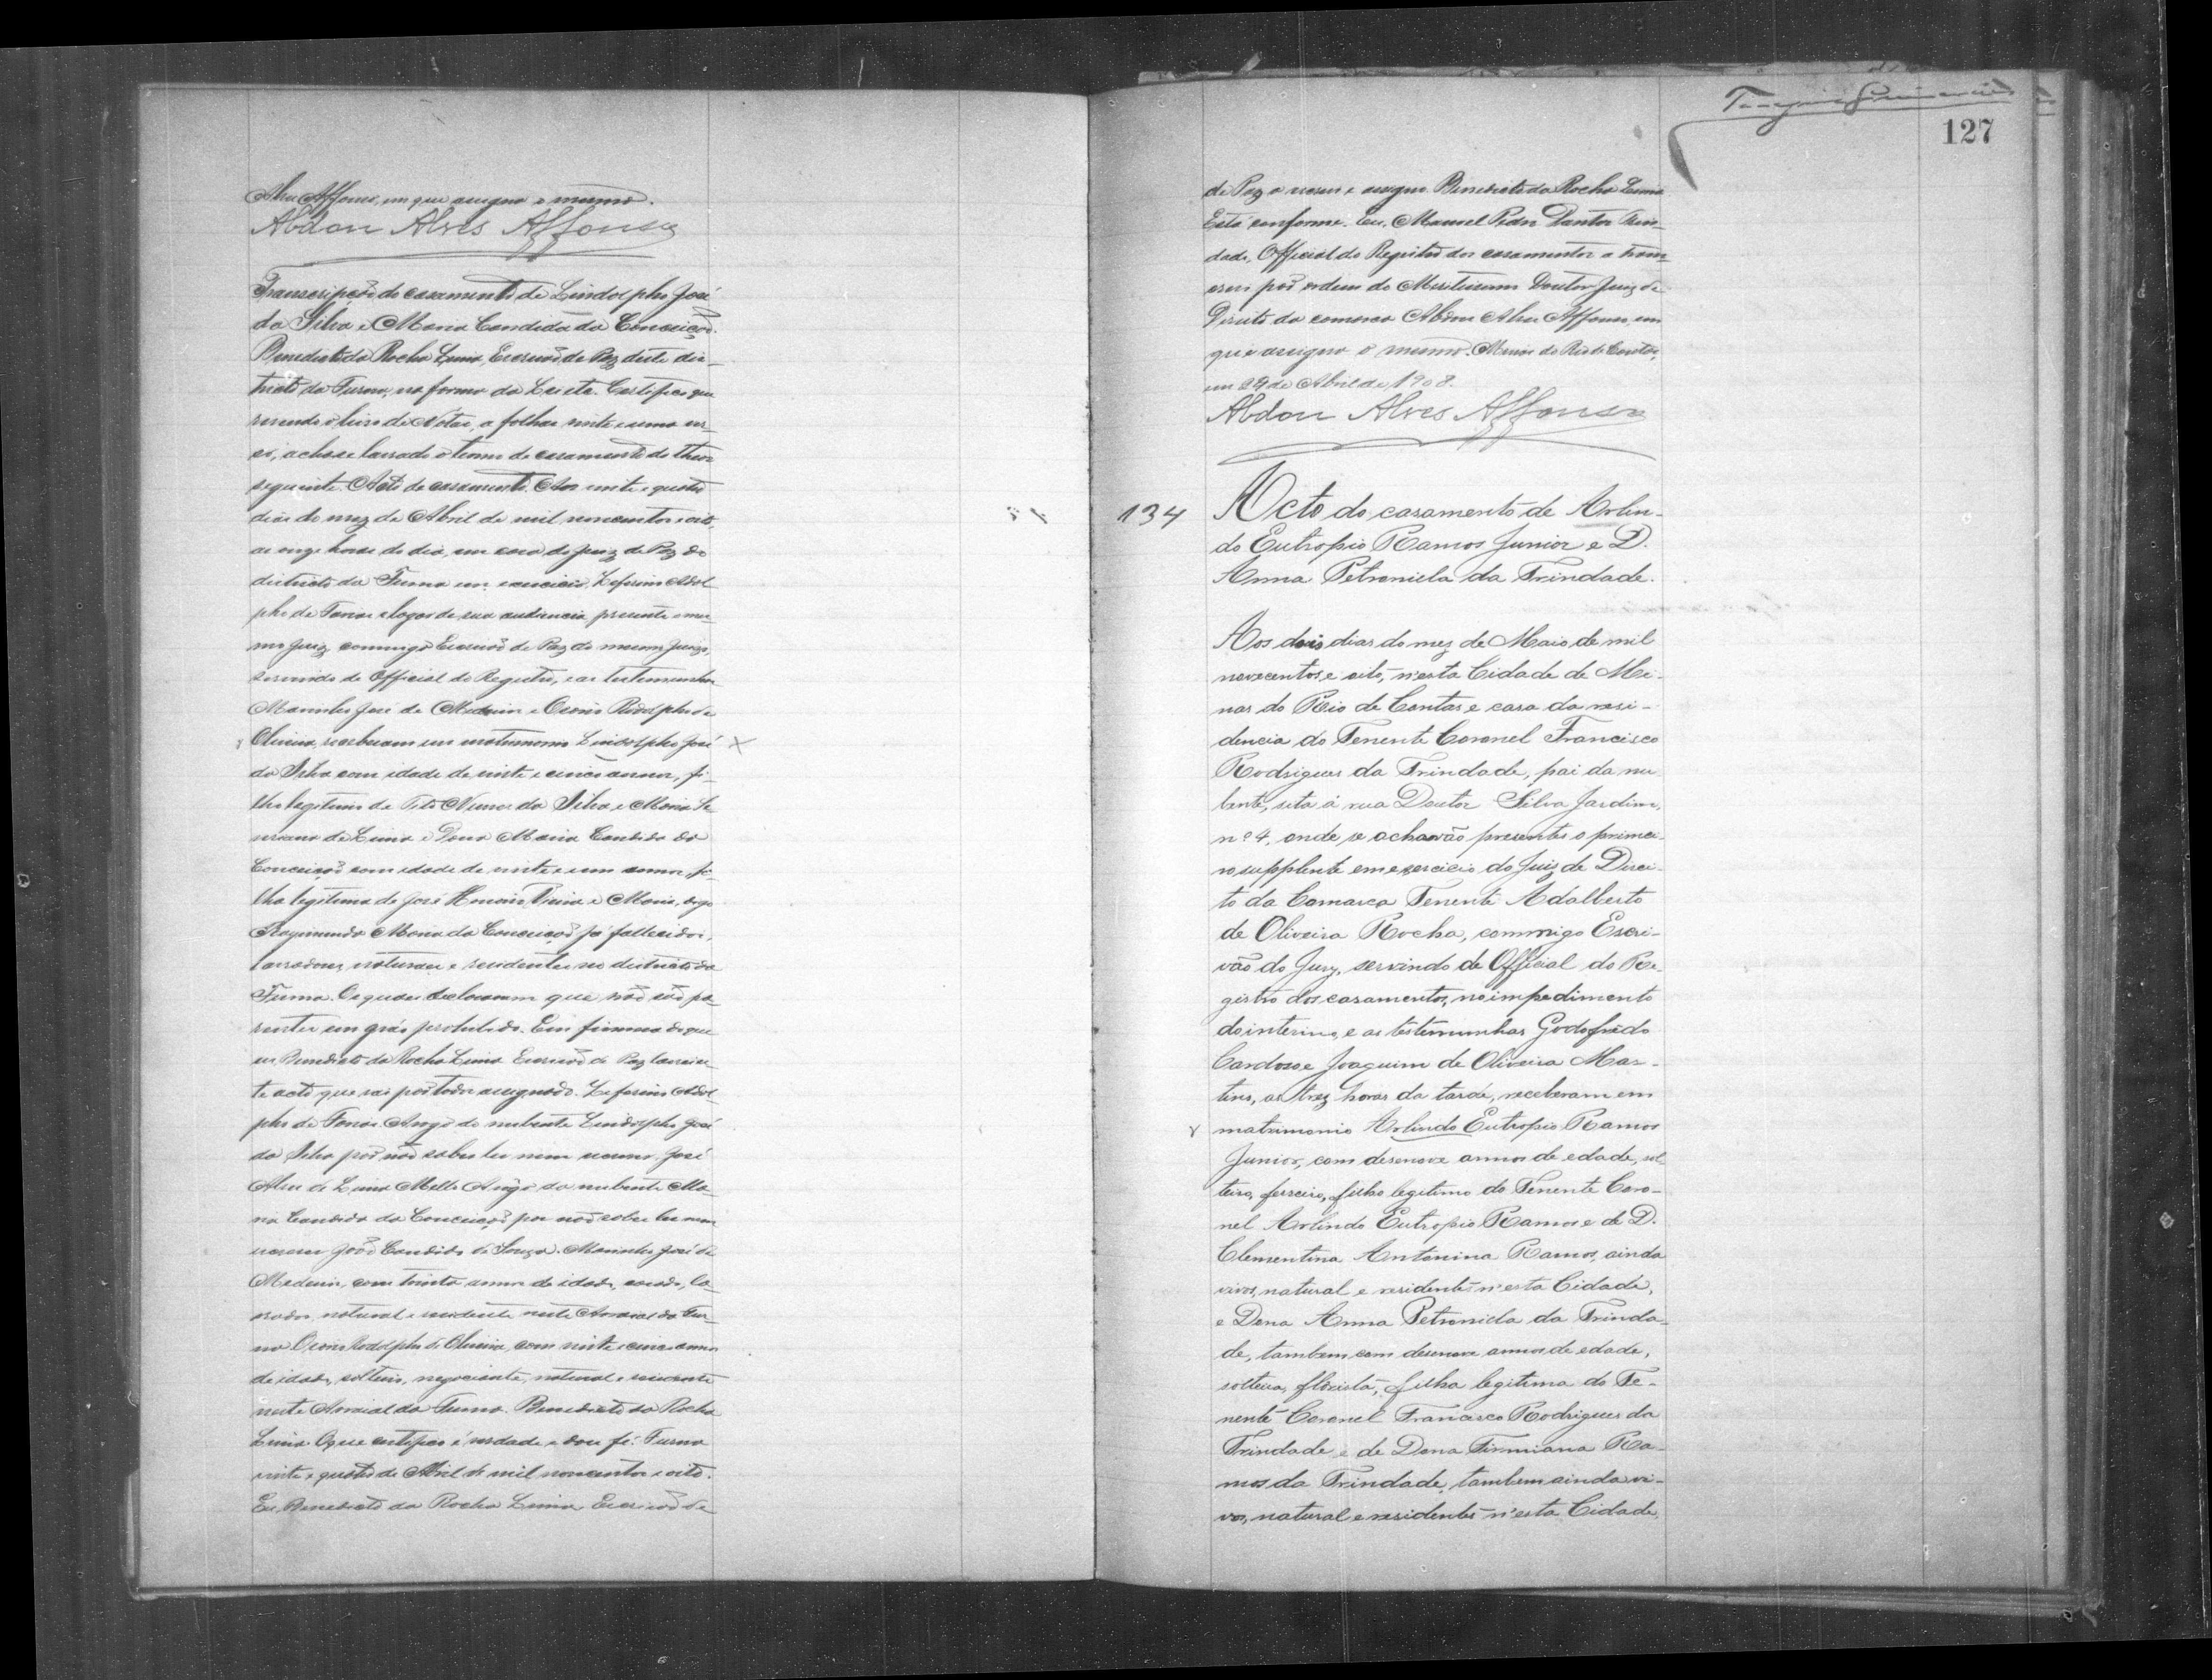 Alves Affonso, em que assigna o mesmo.
Abdon Alves Affonso
Transcripção do casamento de Lindolpho José
da Silva e Maria Candida da Conceição.
Benedicto da Rocha Lima, Escrivão de Paz deste dis-
tricto da Furna, na forma da Lei etc. Certifico que
revendo o livro de Notas, a folhas vinte e uma ver-
so, acha-se lavrado o termo de casamento do theor
seguinte. Acto de casamento. Aos vinte e quatro
dias do mez de Abril de mil novecentos e oito,
as onze horas do dia, em casa do Juiz de Paz do
districto da Furna em exercicio, Zeferino Adol
pho de Farias e logar de sua audiencia presente o mes-
mo Juiz, commigo Escrivão de Paz do mesmo Juizo,
servindo de Official do Registro, e as testemunhas
José de Medeiros e Rodolpho de
Oliveira, receberam em matrimonio Lindolpho José
da Silva com idade de vinte e cinco annos, fi-
lho legitimo de Tito Nunes da Silva e Maria
de Lima e Dona Maria Candida da
Conceição com idade de vinte e um annos, fi-
lha legitima de José Vieira e Maria, digo
Raymunda Maria da Conceição já fallecidos,
lavradores, naturaes e residentes no districto da
Furna. Os quaes declararam que não são pa-
rentes em gráo prohibido. Em firmeza do que
eu Benedicto da Rocha Lima Escrivão de Paz lavrei es-
te acto que vai por todos assignado. Zeferino Adol-
pho de Farias. Arogo do nubente Lindolpho José
da Silva por não saber ler nem escrever, José
Alves de Lima Mello. Arogo da nubente Ma-
ria Candida da Conceição por não saber ler nem
escrever João Candido de Souza. José de
Medeiros, com trinta annos de idade, casado, la-
vrador, natural e residente neste Arraial da Fur-
na. Rodolpho de Oliveira, com vinte e cinco annos
de idade, solteiro, negociante, natural e residente
neste Arraial da Furna. Benedicto da Rocha
Lima. O que certifico é verdade e dou fé. Furna
vinte e quatro de Abril de mil novecentos e oito.
Eu, Benedicto da Rocha Lima Escrivão de
127
de Paz o escrevi e assigno. Benedicto da Rocha Lima
Está conforme. Eu, Manuel Pedro Dantas Trin-
dade, Official do Registro dos casamentos a trans-
crevi por ordem do Meritissimo Doutor Juiz de
Direito da comarca Abdon Alves Affonso, em
que assigna o mesmo. Minas do Rio de Contas,
em 29 de Abril de 1908.
Abdon Alves Affonso
134
Acto do casamento de Arlin-
do Eutropio Ramos Junior e D.
Anna Petronila da Trindade.
Aos dois dias do mez de Maio de mil
novecentos e oito, n'esta Cidade de Mi-
nas do Rio de Contas e casa da resi-
dencia do Tenente Coronel Francisco
Rodrigues da Trindade, pai da nu
bente, sita á rua Doutor Silva Jardim,
nº 4, onde se achavão presentes o primei-
ro supplente em exercicio do Juiz de Direi-
to da Comarca Tenente Adalberto
de Oliveira Rocha, commigo Escri-
vão do Jury, servindo de Official do Re-
gistro dos casamentos, no impedimento
do interino, e as testemunhas Godofredo
Cardoso e Joaquim de Oliveira Mar-
tins, as trez horas da tarde, receberam em
matrimonio Arlindo Eutropio Ramos
Junior, com desenove annos de edade, sol
teiro, ferreiro, filho legitimo do Tenente Coro-
nel Arlindo Eutropio Ramos e de D.
Clementina Antonina Ramos, ainda
vivos, natural e residente n'esta Cidade,
e Dona Anna Petronila da Trinda-
de, tambem com desenove annos de edade,
solteira, florista, filha legitima do Te-
nente Coronel Francisco Rodrigues da
Trindade e de Dona Firmiana Ra-
mos da Trindade, tambem ainda vi-
vos, natural e residente n'esta Cidade,